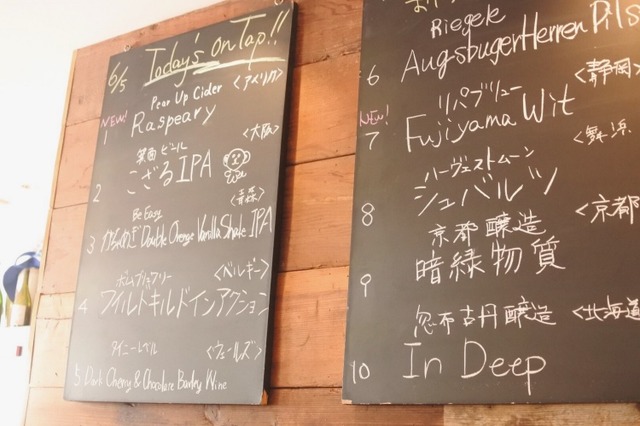 6/5 Today's on Tap!!
Pear Up Cider <アメリカ>
NEW!
1 Raspeary
箕面ビール <大阪>
2 こざるIPA
Be Easy <青森>
3 Double Orenge Vanilla Shake IPA
<ベルギー>
4 ワイルトキルドインアクション
タイニーレベル <ウェールズ>
5 Dark Cherry & Chocolate Barley Wine
Riegele
6 AugsbugerHerren Pils
リパブリュー <静岡>
NEW!
7 Fujiyama Wit
ハーヴェストムーン <舞浜
8 シュバルツ
京都醸造 <京都
9 暗緑物質
忽布古丹醸造 <北海道
10 In Deep